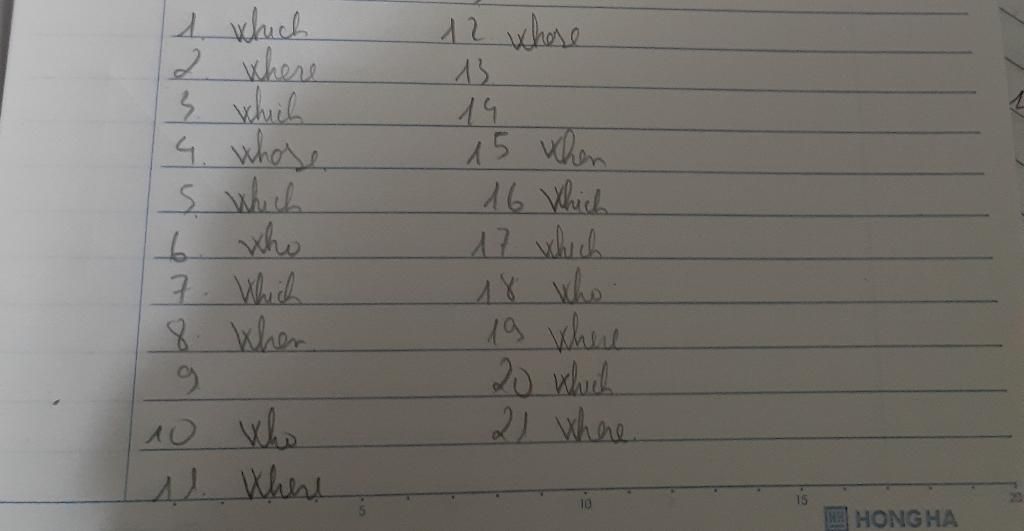 1. which
2. where
3. which
4. whose
5. which
6 who
7. which
8. when
9
10 who
11. where
12 whose
13
14
15 when
16 which
17 which
18 who
19 where
20 which
21 where
5 10 15 20
HONG HA